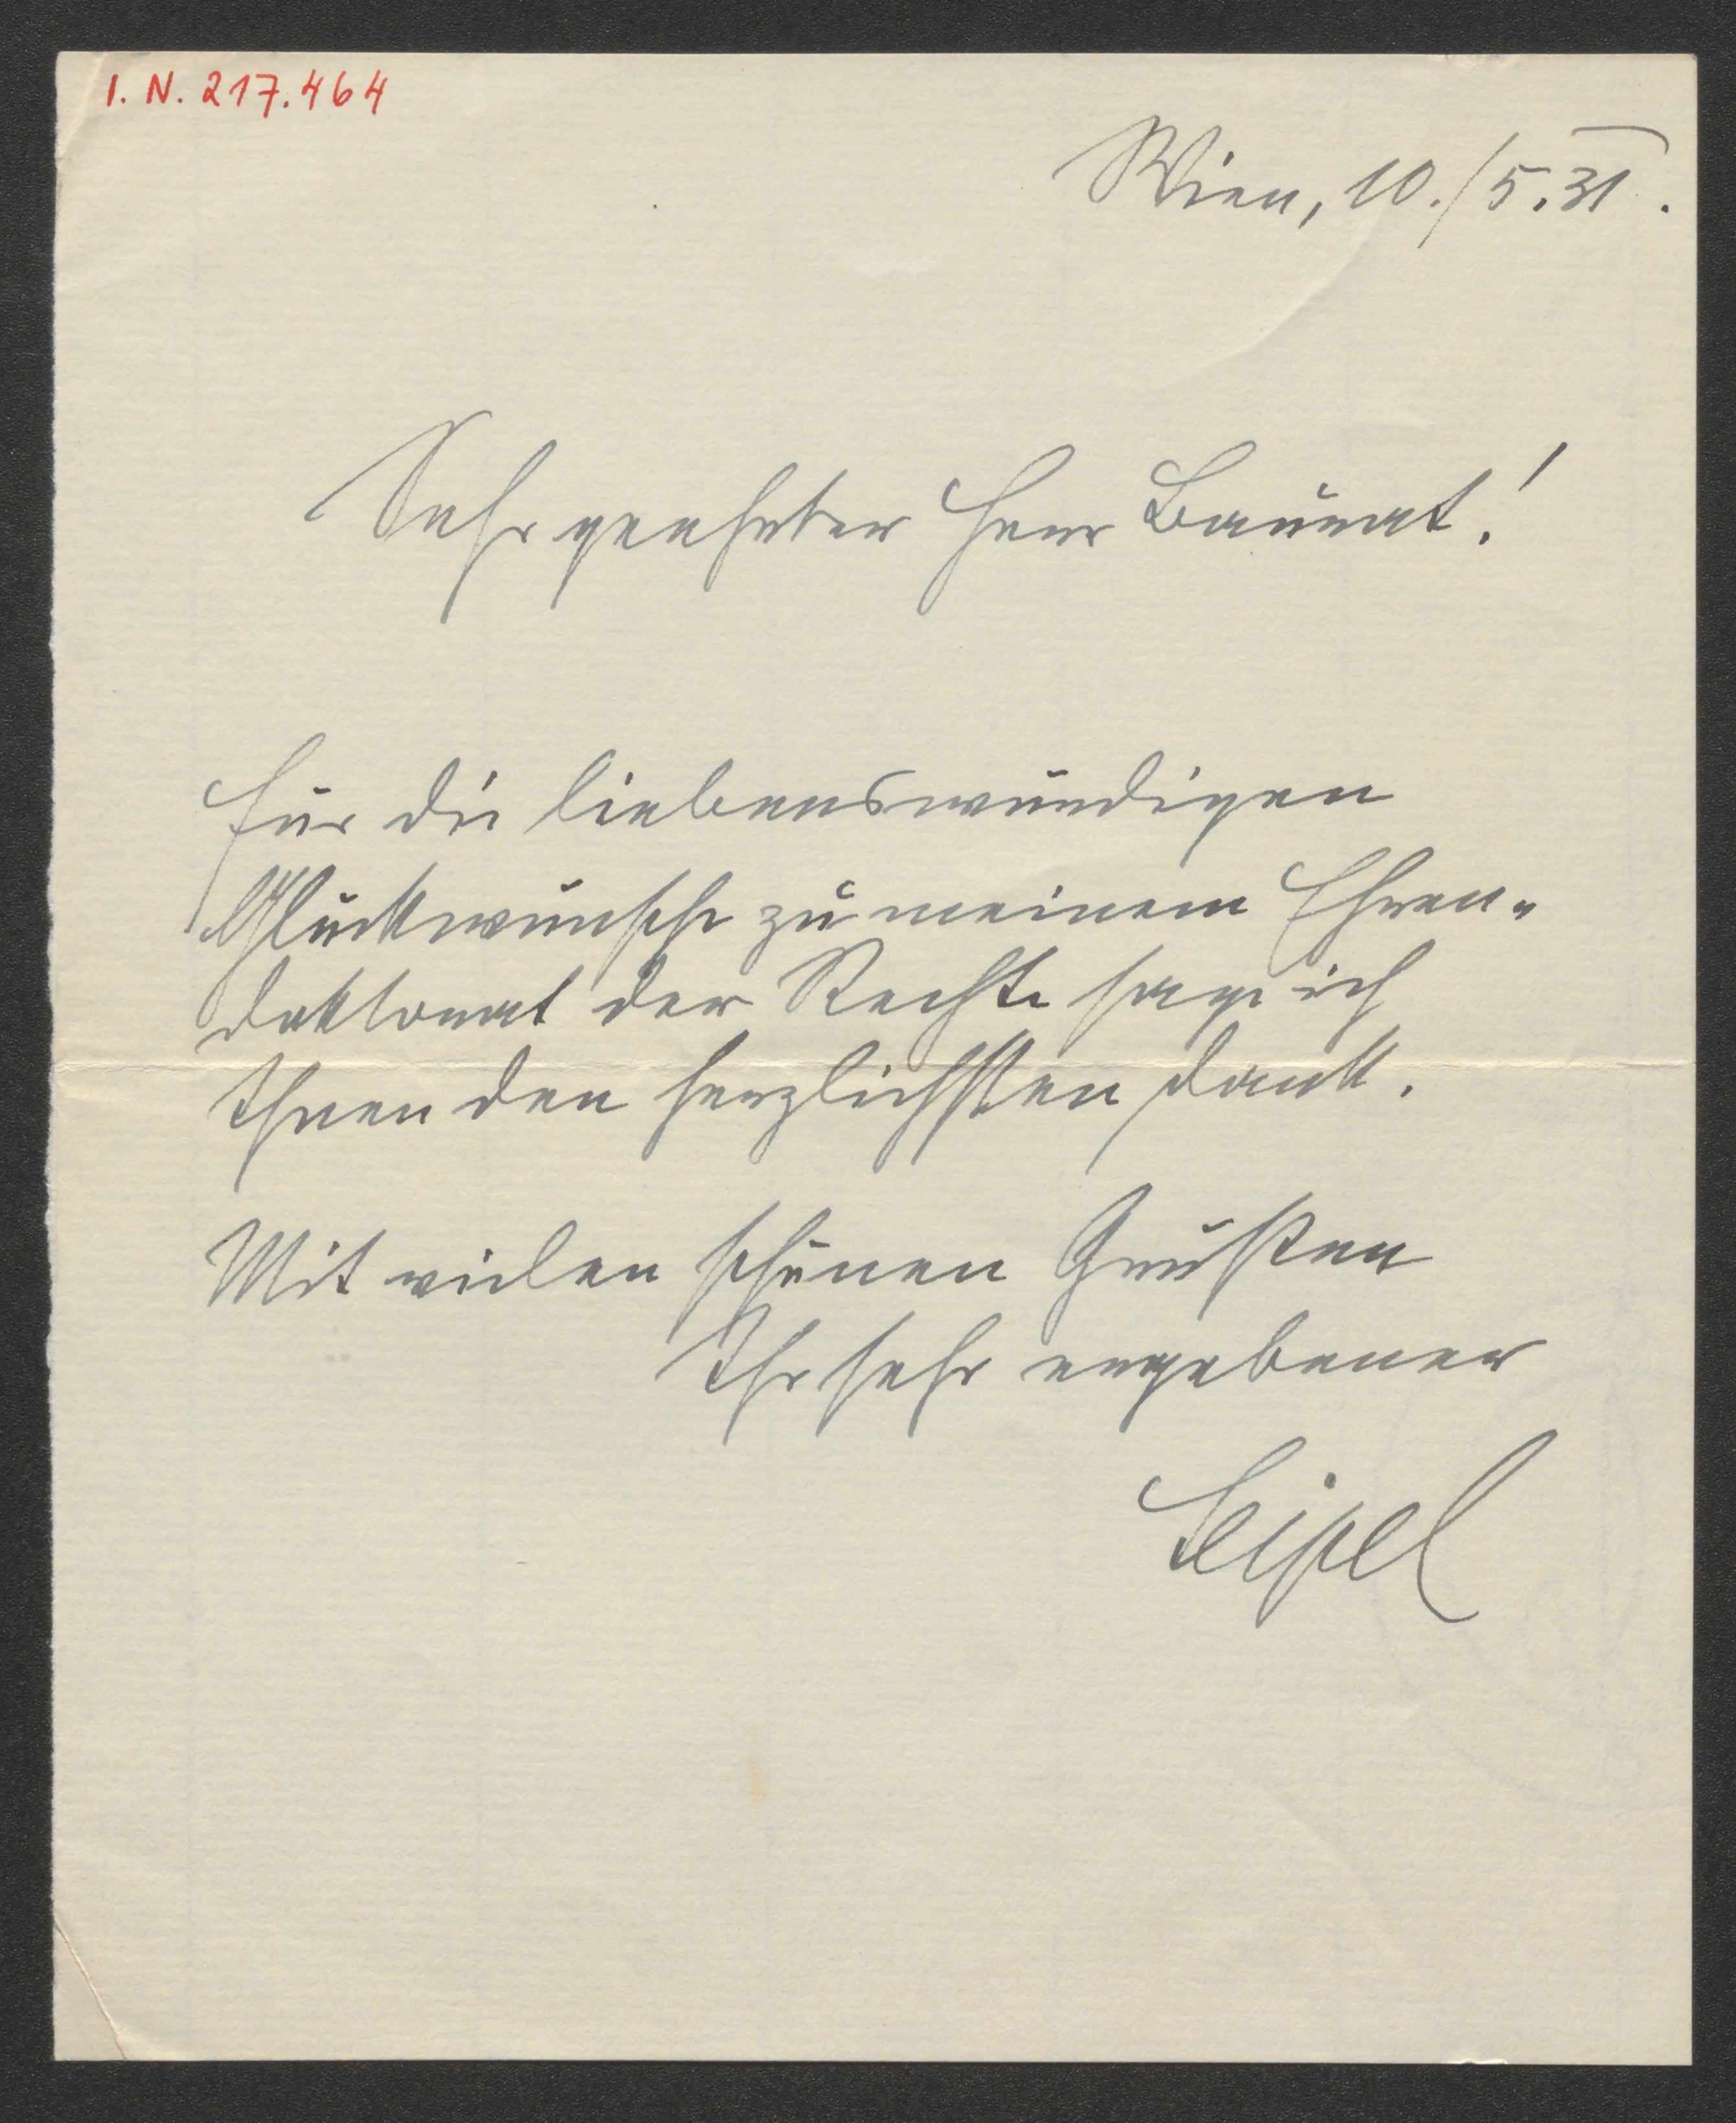 I. N. 217.464
Wien, 10./5.31.
Sehr geehrter Herr Baurat!
Für die liebenswürdigen
Glückwünsche zu meinem Ehren-
doktorat der Rechte sage ich
Ihnen den herzlichsten Dank.
Mit vielen schönen Grüßen
Ihr sehr ergebener
Seipel